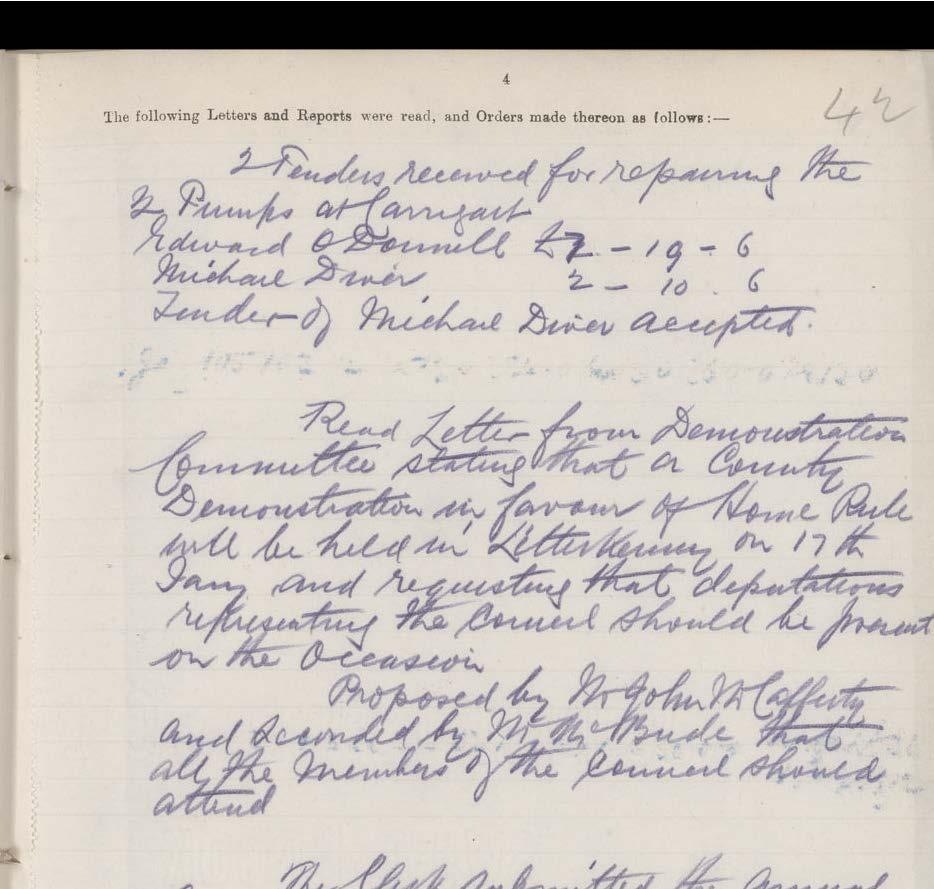 4
42
The following Letters and Reports were read, and Orders made thereon as follows:—
2 Tenders received for repairing the
2 Pumps at Carrigart
Edward O Donnell £2 - 19 - 6
Michael Diver 2 - 10 . 6
Tender of Michael Diver accepted.
Read Letter from Demonstration
Committee stating that a County
Demonstration in favour of Home Rule
will be held in Letterkenny on 17th
Jany and requesting that deputations
representing the Council should be present
on the Occasion
Proposed by Mr John McCafferty
and seconded by Mr McBride that
all the Members of the Council should
attend
The Clerk submitted the annual